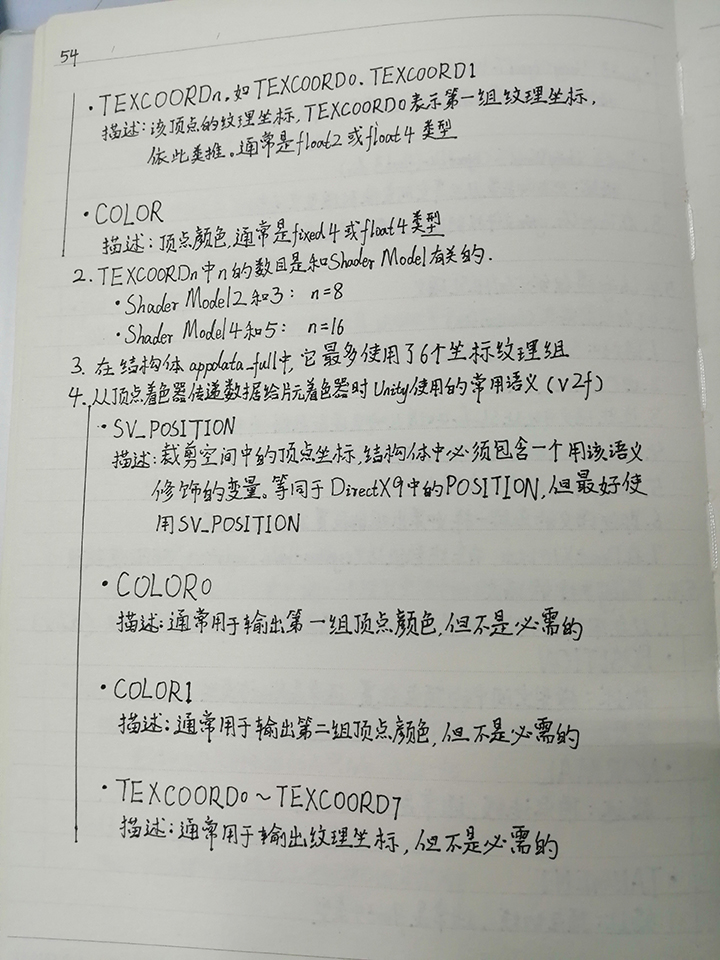 54
·TEXCOORDn,如TEXCOORD0、TEXCOORD1
描述:该顶点的纹理坐标,TEXCOORD0表示第一组纹理坐标,
依此类推。通常是float2或float4类型
·COLOR
描述:顶点颜色,通常是fixed4或float4类型
2. TEXCOORDn中n的数目是和Shader Model有关的.
·Shader Model2和3: n=8
·Shader Model4和5: n=16
3. 在结构体appdata_full中,它最多使用了6个坐标纹理组
4. 从顶点着色器传递数据给片元着色器时Unity使用的常用语义(v2f)
·SV_POSITION
描述:裁剪空间中的顶点坐标,结构体中必须包含一个用该语义
修饰的变量。等同于DirectX9中的POSITION,但最好使
用SV_POSITION
·COLOR0
描述:通常用于输出第一组顶点颜色,但不是必需的
·COLOR1
描述:通常用于输出第二组顶点颜色,但不是必需的
·TEXCOORD0~TEXCOORD7
描述:通常用于输出纹理坐标,但不是必需的